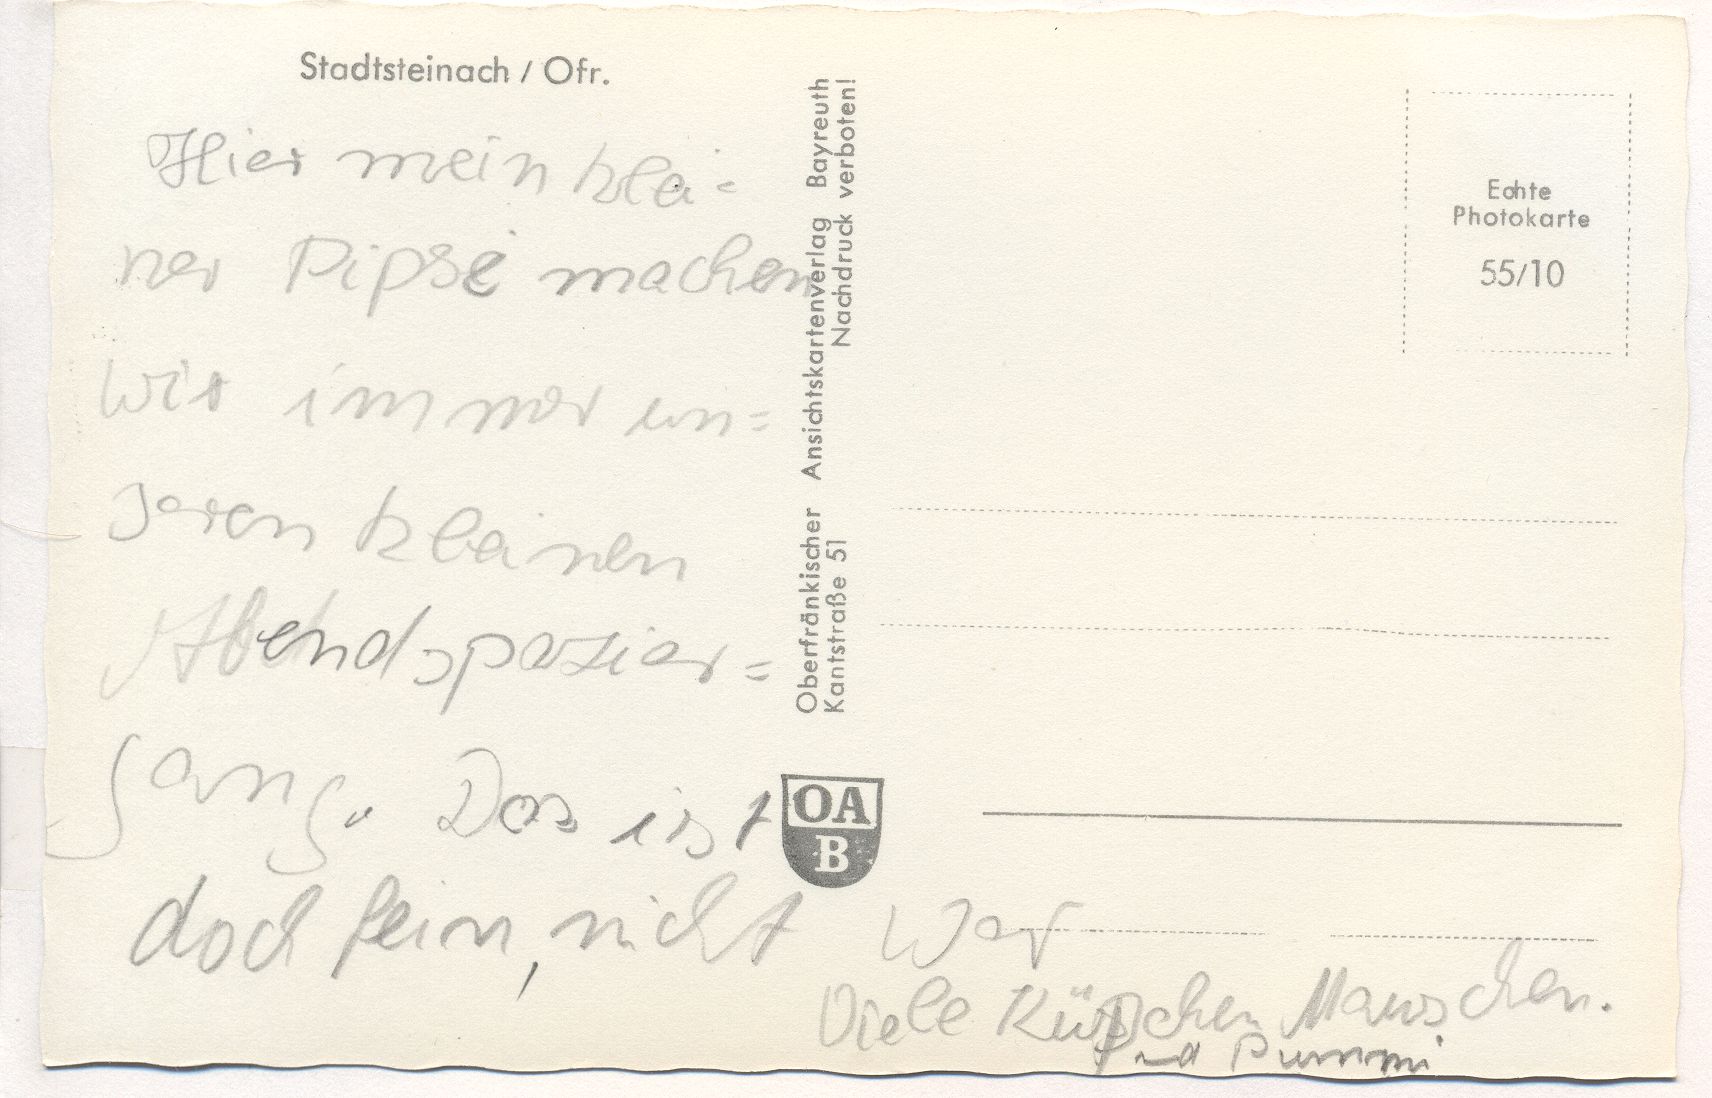 Stadtsteinach / Ofr.
Hier mein klei=
ner Pipsi machen
wir immer un=
seren kleinen
Abendspazier=
gang. Das ist
doch fein, nicht war
Viele Küßchen Mauschen.
und Pummi
Oberfränkischer Ansichtskartenverlag Bayreuth
Kantstraße 51 Nachdruck verboten!
OA
B
Echte
Photokarte
55/10